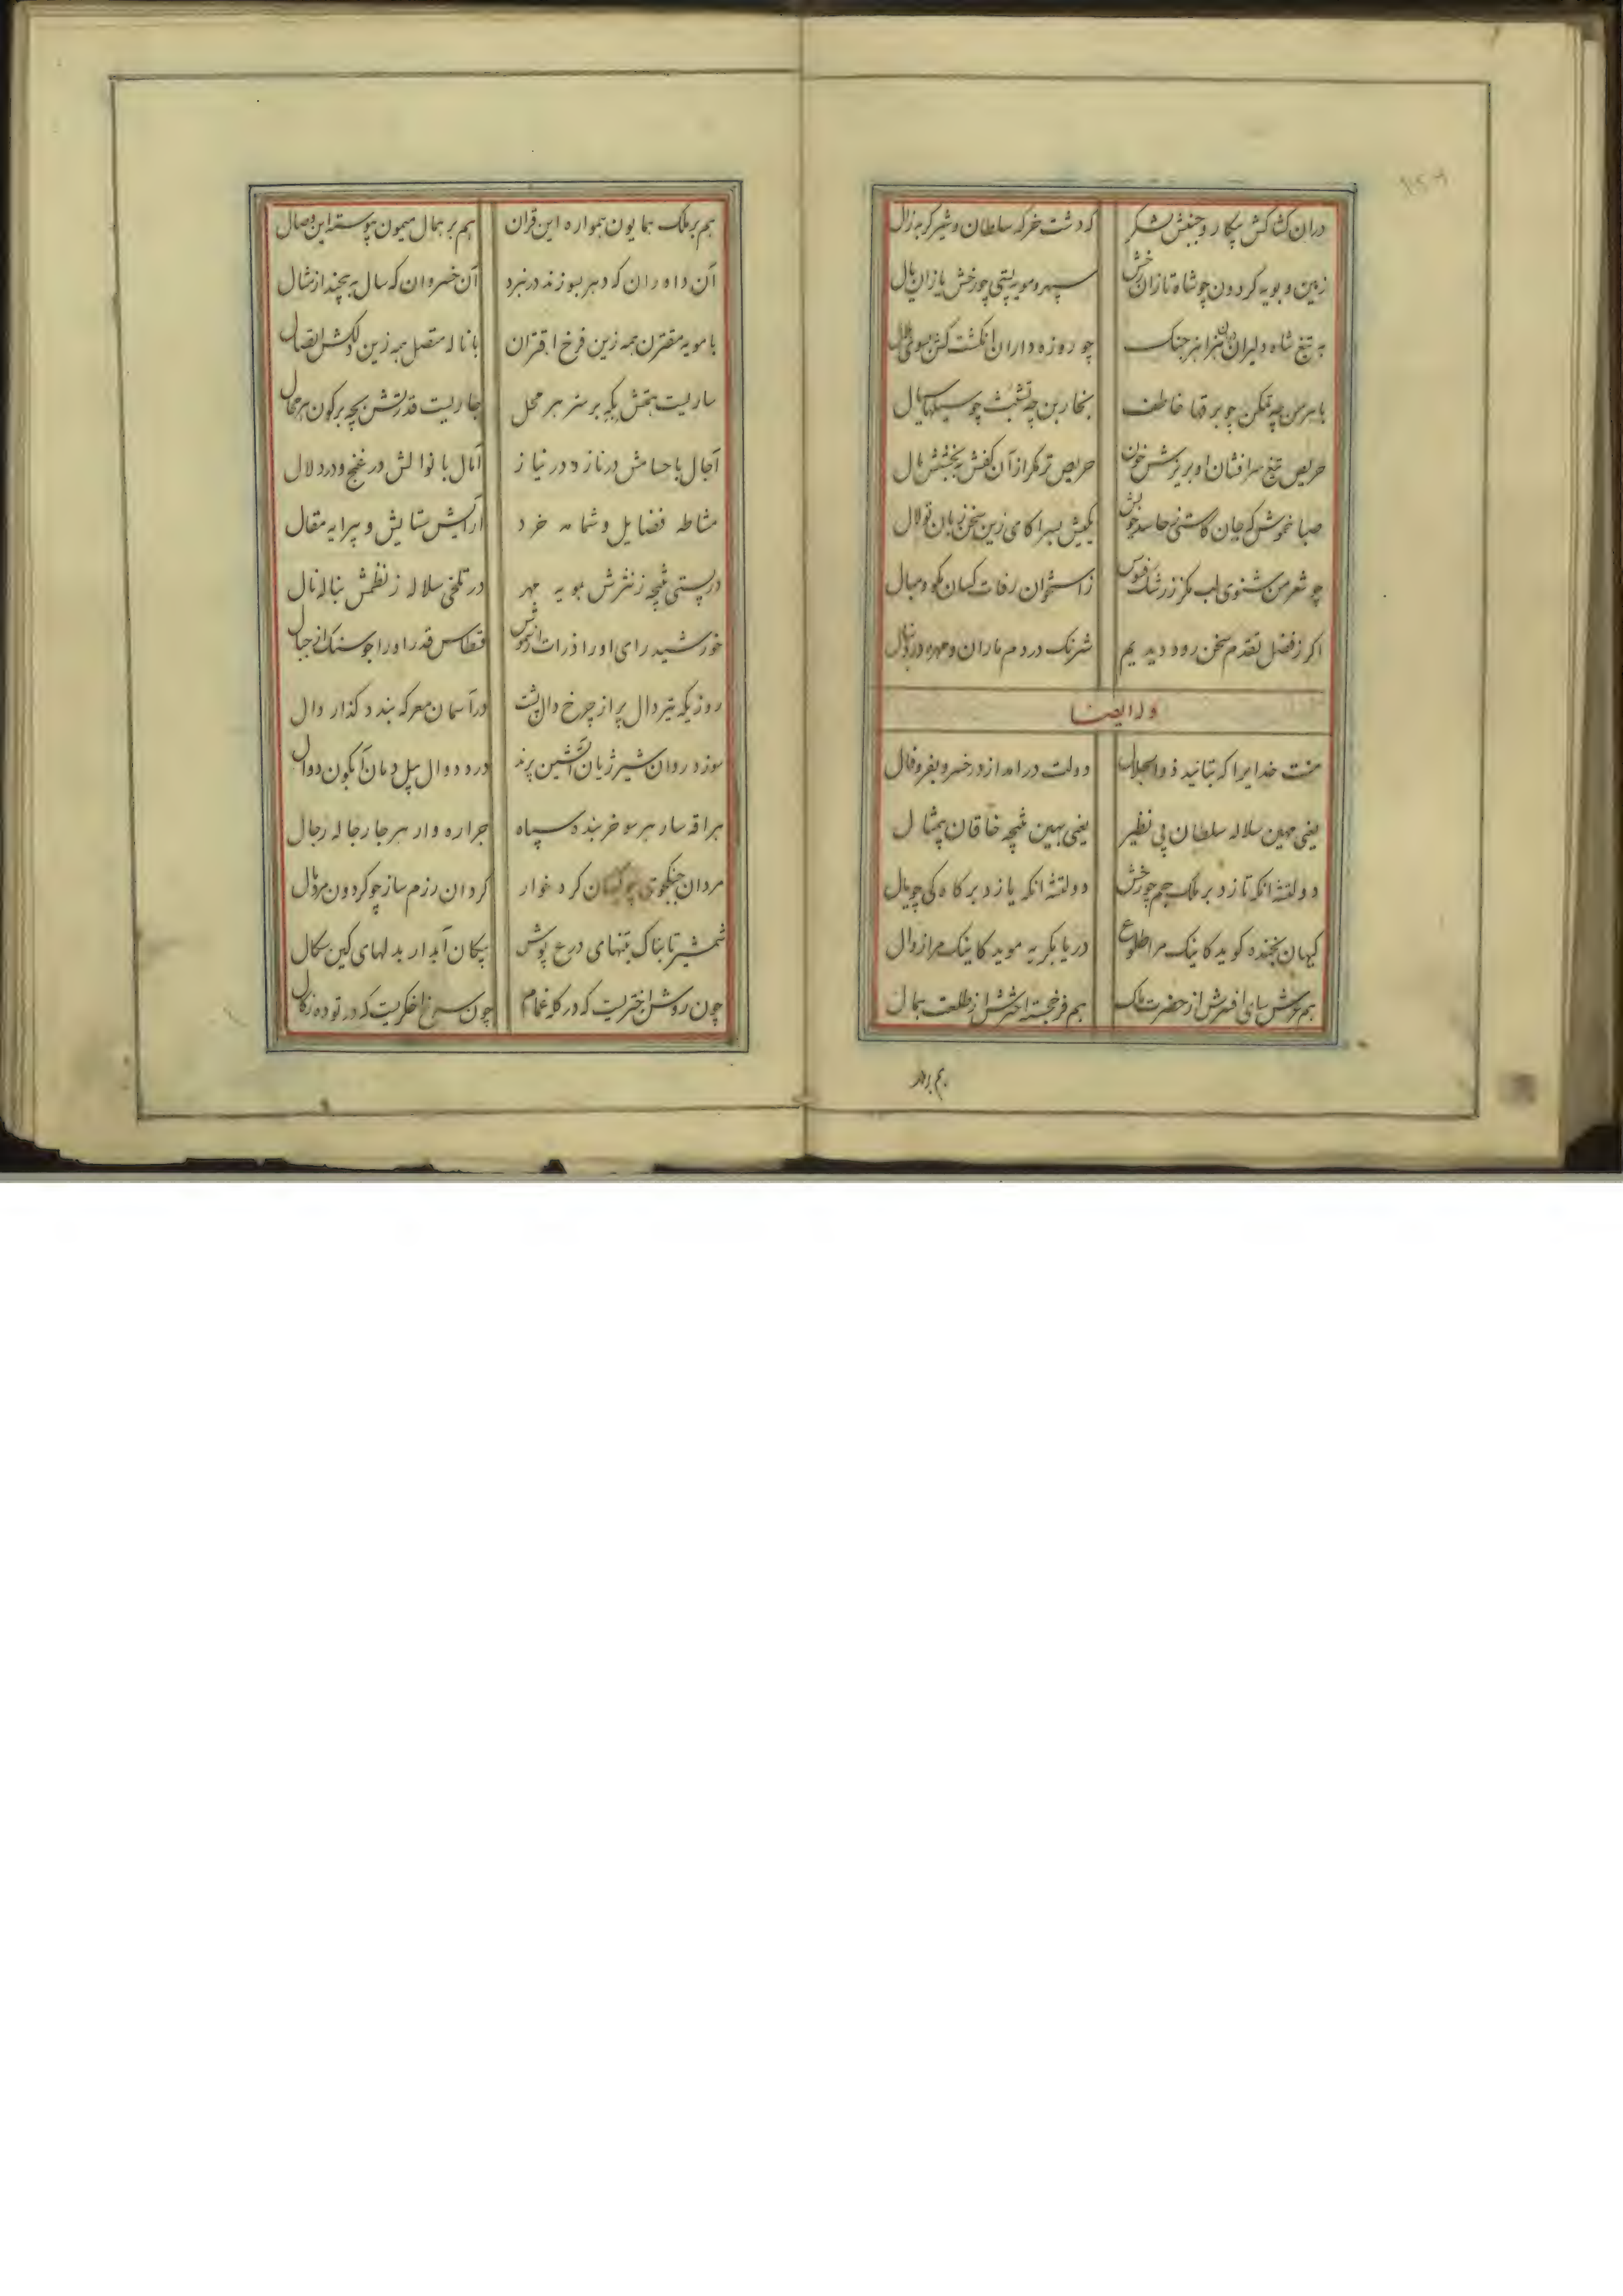 دران کشاکش پیکار و جنبش لشکر که دشت خرکه سلطان و شیر کربه زال
زمین و بویه کردون چو شاه تازان رخش سپهر و مویه پستی چو رخش یازان یال
به تیغ شاه دلیران هنر جنک چو روزه داران انکشت کش بسوی هلال
باهرمن چه تمکن چو برقها خاطف بخاربن چه تشبث چو
حریص تیغ سرافشان او بریزش خون حریص تر مکر از آن کفش ببخشش مال
صبا خموش که جان کاستی حاسد زین سخن زبان تو لال
چو شعر من شنوی لب مکز ز رشک زاستخوان رفات کسان مکو و مبال
اکر ز فضل تقدم سخن رود دیدیم شرنک در دم ماران و مهره در دنبال
وله ایضا
منت خدایرا که بتائید ذوالجلال دولت درامد از در خسرو بفر و فال
یعنی مهین سلاله سلطان بی نظیر یعنی بهین نتیجه خاقان بیمثال
دولتشه انکه تازد بر ملک جم چو رخش دولتشه انکه یازد بر کاه کی چو یال
کیهان بخنده کوید کاینک مرا طلوع دریا بکریه موید کاینک مرا زوال
هم عرش سای افسرش از حضرت ملک هم فرخجسته اخترش از طلعت همال
هم بر ملک
هم بر ملک همایون همواره این قران هم بر همال میمون پیوسته این وصال
آن داوران که دهر بسوزند در نبرد آن خسروان که سال به بخشند از نوال
با مویه مقترن همه زین فرخ اقتران با ناله متصل همه زین دلکش اتصال
ساریست نقش یکه بر سر هر محل جاریست قدرتش بچه بر کون هر محال
آجال با حسامش در ناز و در نیاز آمال با نوالش در غنج و در دلال
مشاطه فضایل و شمامه خرد آرایش ستایش و پیرایه مقال
در پستی نتیجه ز نثرش بمویه مهر در تلخی سلاله ز نظمش بناله نال
خورشید رای او را ذرات از شموس قسطاس قدر او را جوسنک از جبال
روزیکه تیر دال پر از چرخ دال پشت در آسمان معرکه بندد کذار دال
سوزد روان شیر ژیان آتشین پرند درد دوال پیل دمان آبکون دوال
براقه سار هر سو خربنده سپاه جراره وار هر جا رجاله رجال
مردان جنکجوی کرد خوار کردان رزم ساز چو کردون مرد
شمشیر تابناک بتنهای درع پوش پیکان آبدار بدلهای کین سکال
چون روشن اختریست که در کله غمام چون سرخ اخکریست که در توده زکال